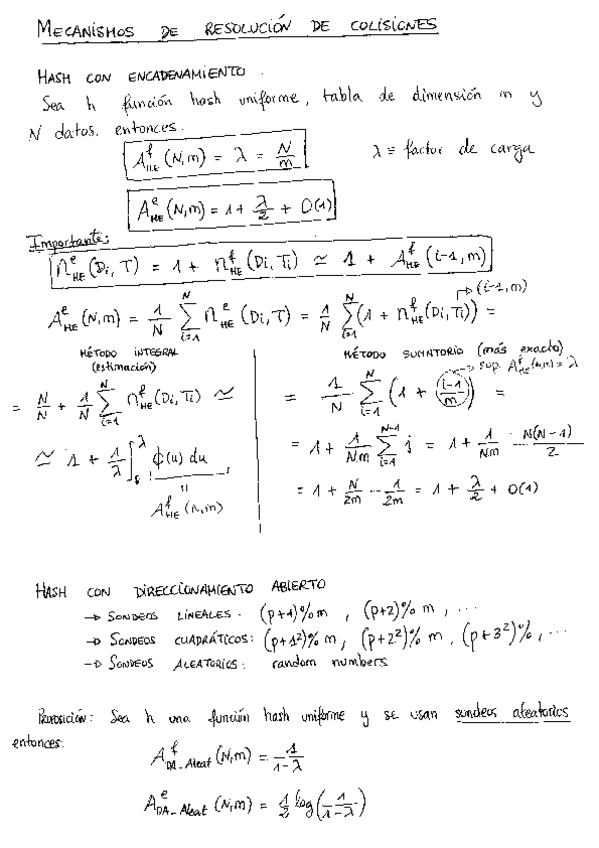 MECANISMOS DE RESOLUCIÓN DE COLISIONES
HASH CON ENCADENAMIENTO.
Sea h función hash uniforme, tabla de dimensión m y
N datos. entonces.
A^f_HE (N,m) = λ = N/m
λ ≡ factor de carga
A^e_HE (N,m) = 1 + λ/2 + O(1)
Importante:
n^e_HE (Di, T) = 1 + n^f_HE (Di, Ti) ≃ 1 + A^f_HE (i-1, m)
(i-1, m)
A^e_HE (N,m) = 1/N ∑_{i=1}^{N} n^e_HE (Di, T) = 1/N ∑_{i=1}^{N} (1 + n^f_HE (Di, Ti)) =
MÉTODO INTEGRAL
(estimación)
= N/N + 1/N ∑_{i=1}^{N} n^f_HE (Di, Ti) ≃
≃ 1 + 1/λ ∫_0^λ ϕ(u) du
A^f_HE (N,m)
MÉTODO SUMATORIO (más exacto)
sup. A^f_HE (N,m) = λ
= 1/N ∑_{i=1}^{N} (1 + (i-1)/m) =
= 1 + 1/(N.m) ∑_{i=1}^{N-1} j = 1 + 1/(N.m) · N(N-1)/2
= 1 + N/2m - 1/2m = 1 + λ/2 + O(1)
HASH CON DIRECCIONAMIENTO ABIERTO
→ SONDEOS LINEALES. (p+1)%m , (p+2)%m , ...
→ SONDEOS CUADRÁTICOS: (p+1²)%m, (p+2²)%m, (p+3²)%, ...
→ SONDEOS ALEATORIOS: random numbers
PROPOSICIÓN: Sea h una función hash uniforme y se usan sondeos aleatorios
entonces:
A^f_DA-Aleat (N,m) = 1/(1-λ)
A^e_DA-Aleat (N,m) = 1/2 log(1/(1-λ))